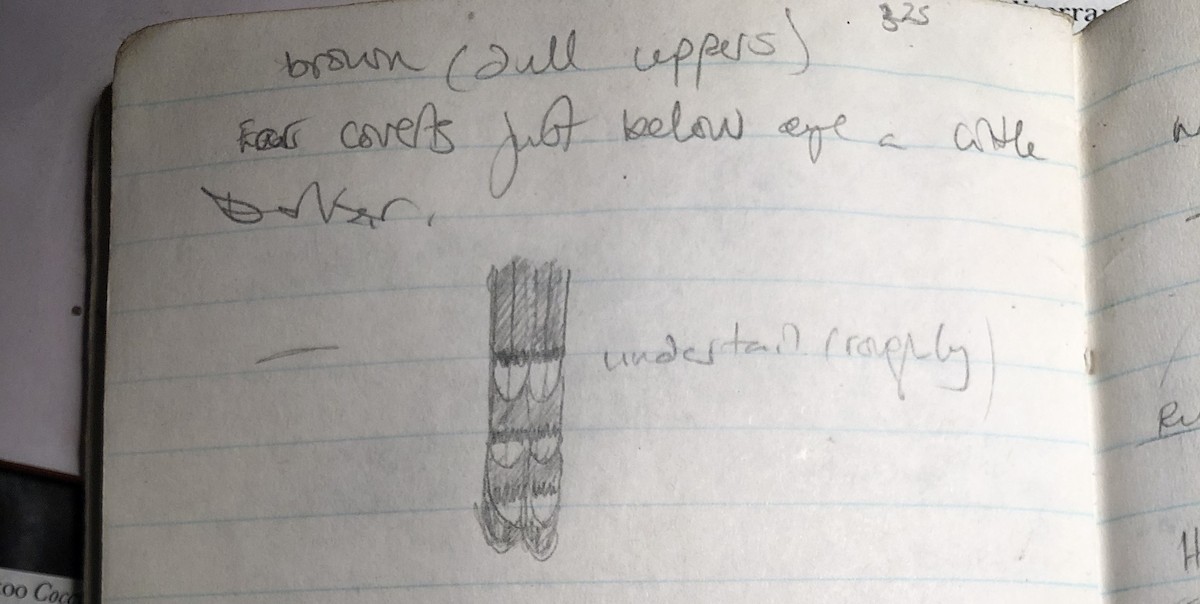 325
brown (dull uppers)
Ear coverts just below eye a little
darker.
undertail (roughly)
H
oo Coc